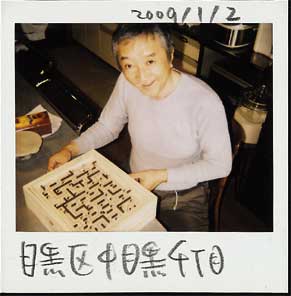 2009/1/2
目黒区中目黒4丁目